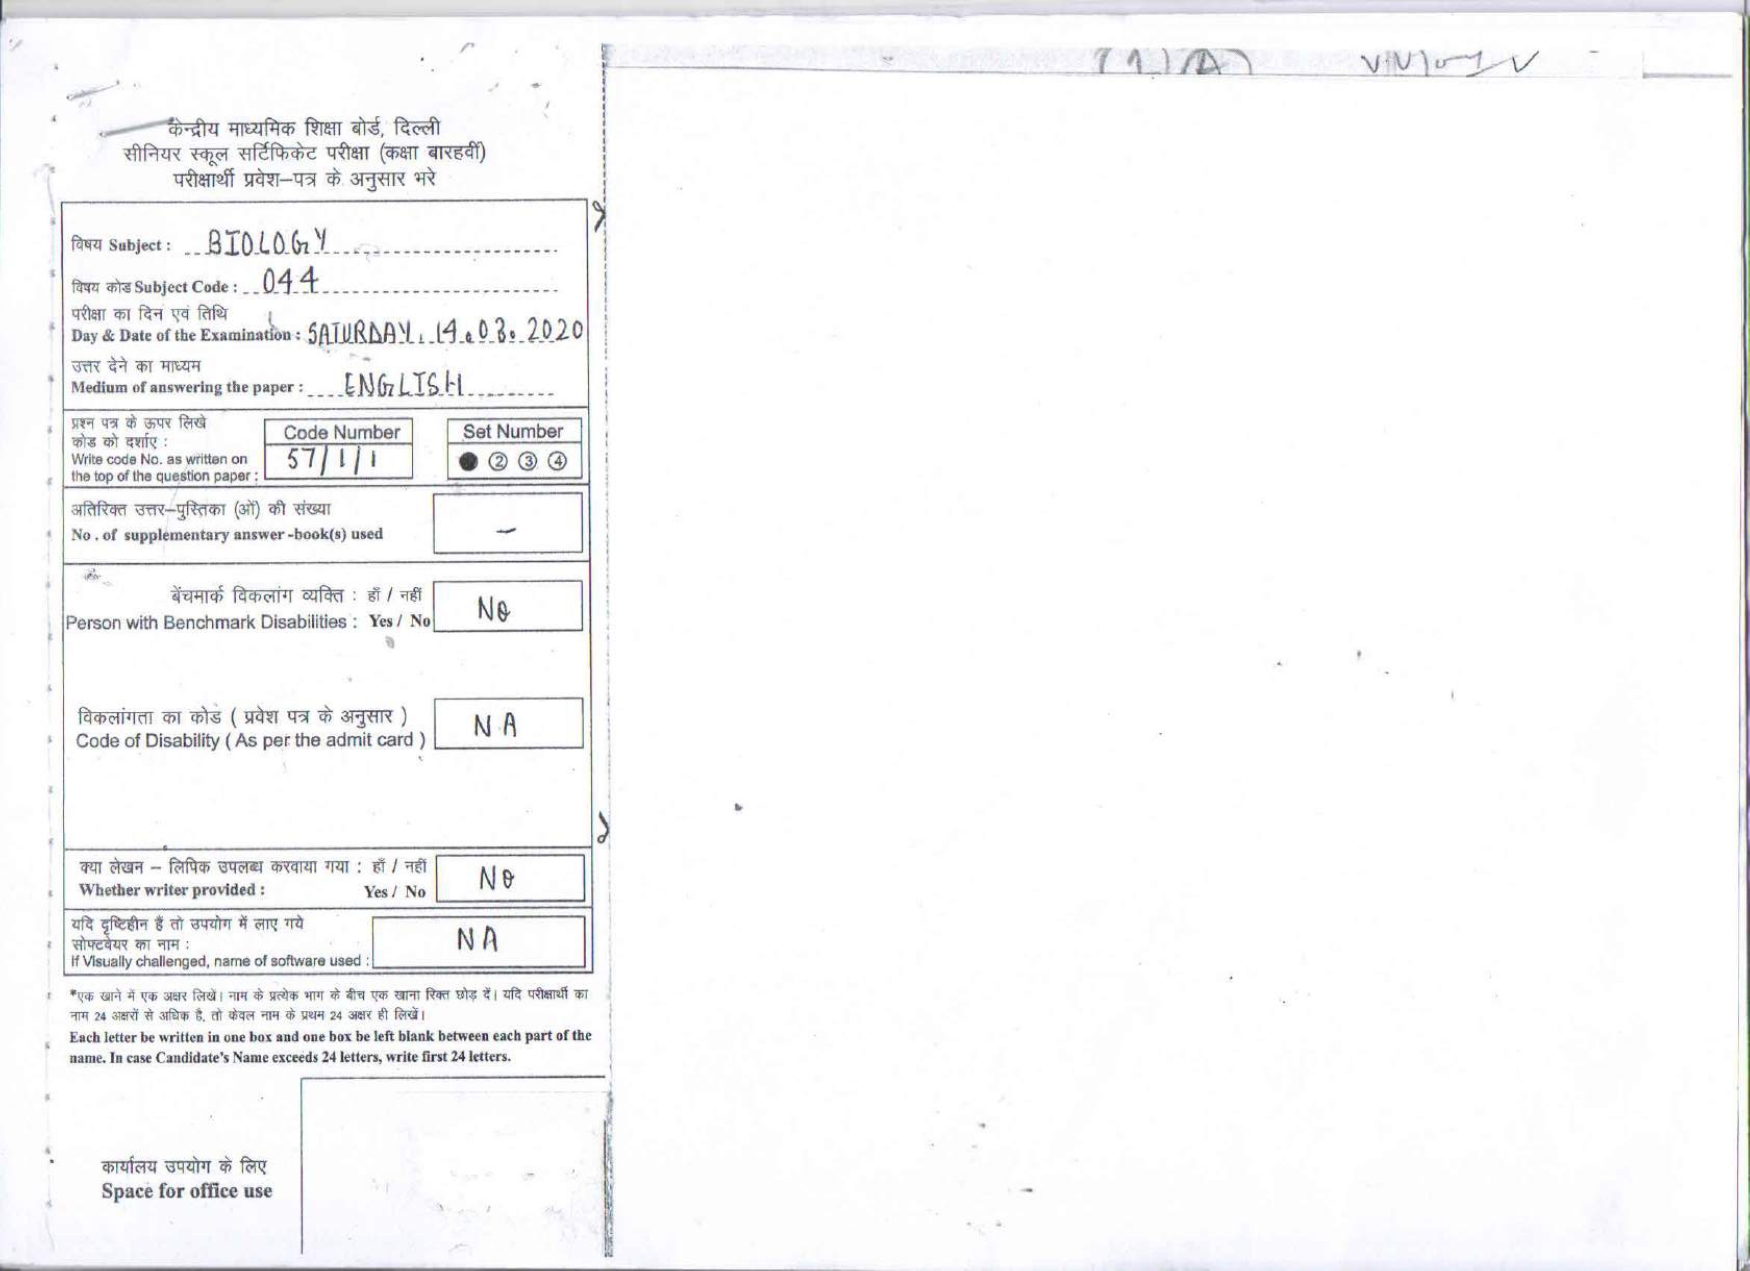 केन्द्रीय माध्यमिक शिक्षा बोर्ड, दिल्ली
सीनियर स्कूल सर्टिफिकेट परीक्षा (कक्षा बारहवीं)
परीक्षार्थी प्रवेश–पत्र के अनुसार भरे
विषय Subject : BIOLOGY
विषय कोड Subject Code : 044
परीक्षा का दिन एवं तिथि
Day & Date of the Examination : SATURDAY, 14.03.2020
उत्तर देने का माध्यम
Medium of answering the paper : ENGLISH
प्रश्न पत्र के ऊपर लिखे
कोड को दर्शाए :
Write code No. as written on
the top of the question paper :
Code Number
57/1/1
Set Number
② ③ ④
अतिरिक्त उत्तर–पुस्तिका (ओं) की संख्या
No . of supplementary answer -book(s) used
–
बेंचमार्क विकलांग व्यक्ति : हाँ / नहीं
Person with Benchmark Disabilities : Yes / No
No
विकलांगता का कोड ( प्रवेश पत्र के अनुसार )
Code of Disability ( As per the admit card )
NA
क्या लेखन – लिपिक उपलब्ध करवाया गया : हाँ / नहीं
Whether writer provided : Yes / No
No
यदि दृष्टिहीन हैं तो उपयोग में लाए गये
सोफ्टवेयर का नाम :
If Visually challenged, name of software used :
NA
*एक खाने में एक अक्षर लिखें। नाम के प्रत्येक भाग के बीच एक खाना रिक्त छोड़ दें। यदि परीक्षार्थी का
नाम 24 अक्षरों से अधिक है, तो केवल नाम के प्रथम 24 अक्षर ही लिखें।
Each letter be written in one box and one box be left blank between each part of the
name. In case Candidate's Name exceeds 24 letters, write first 24 letters.
कार्यालय उपयोग के लिए
Space for office use